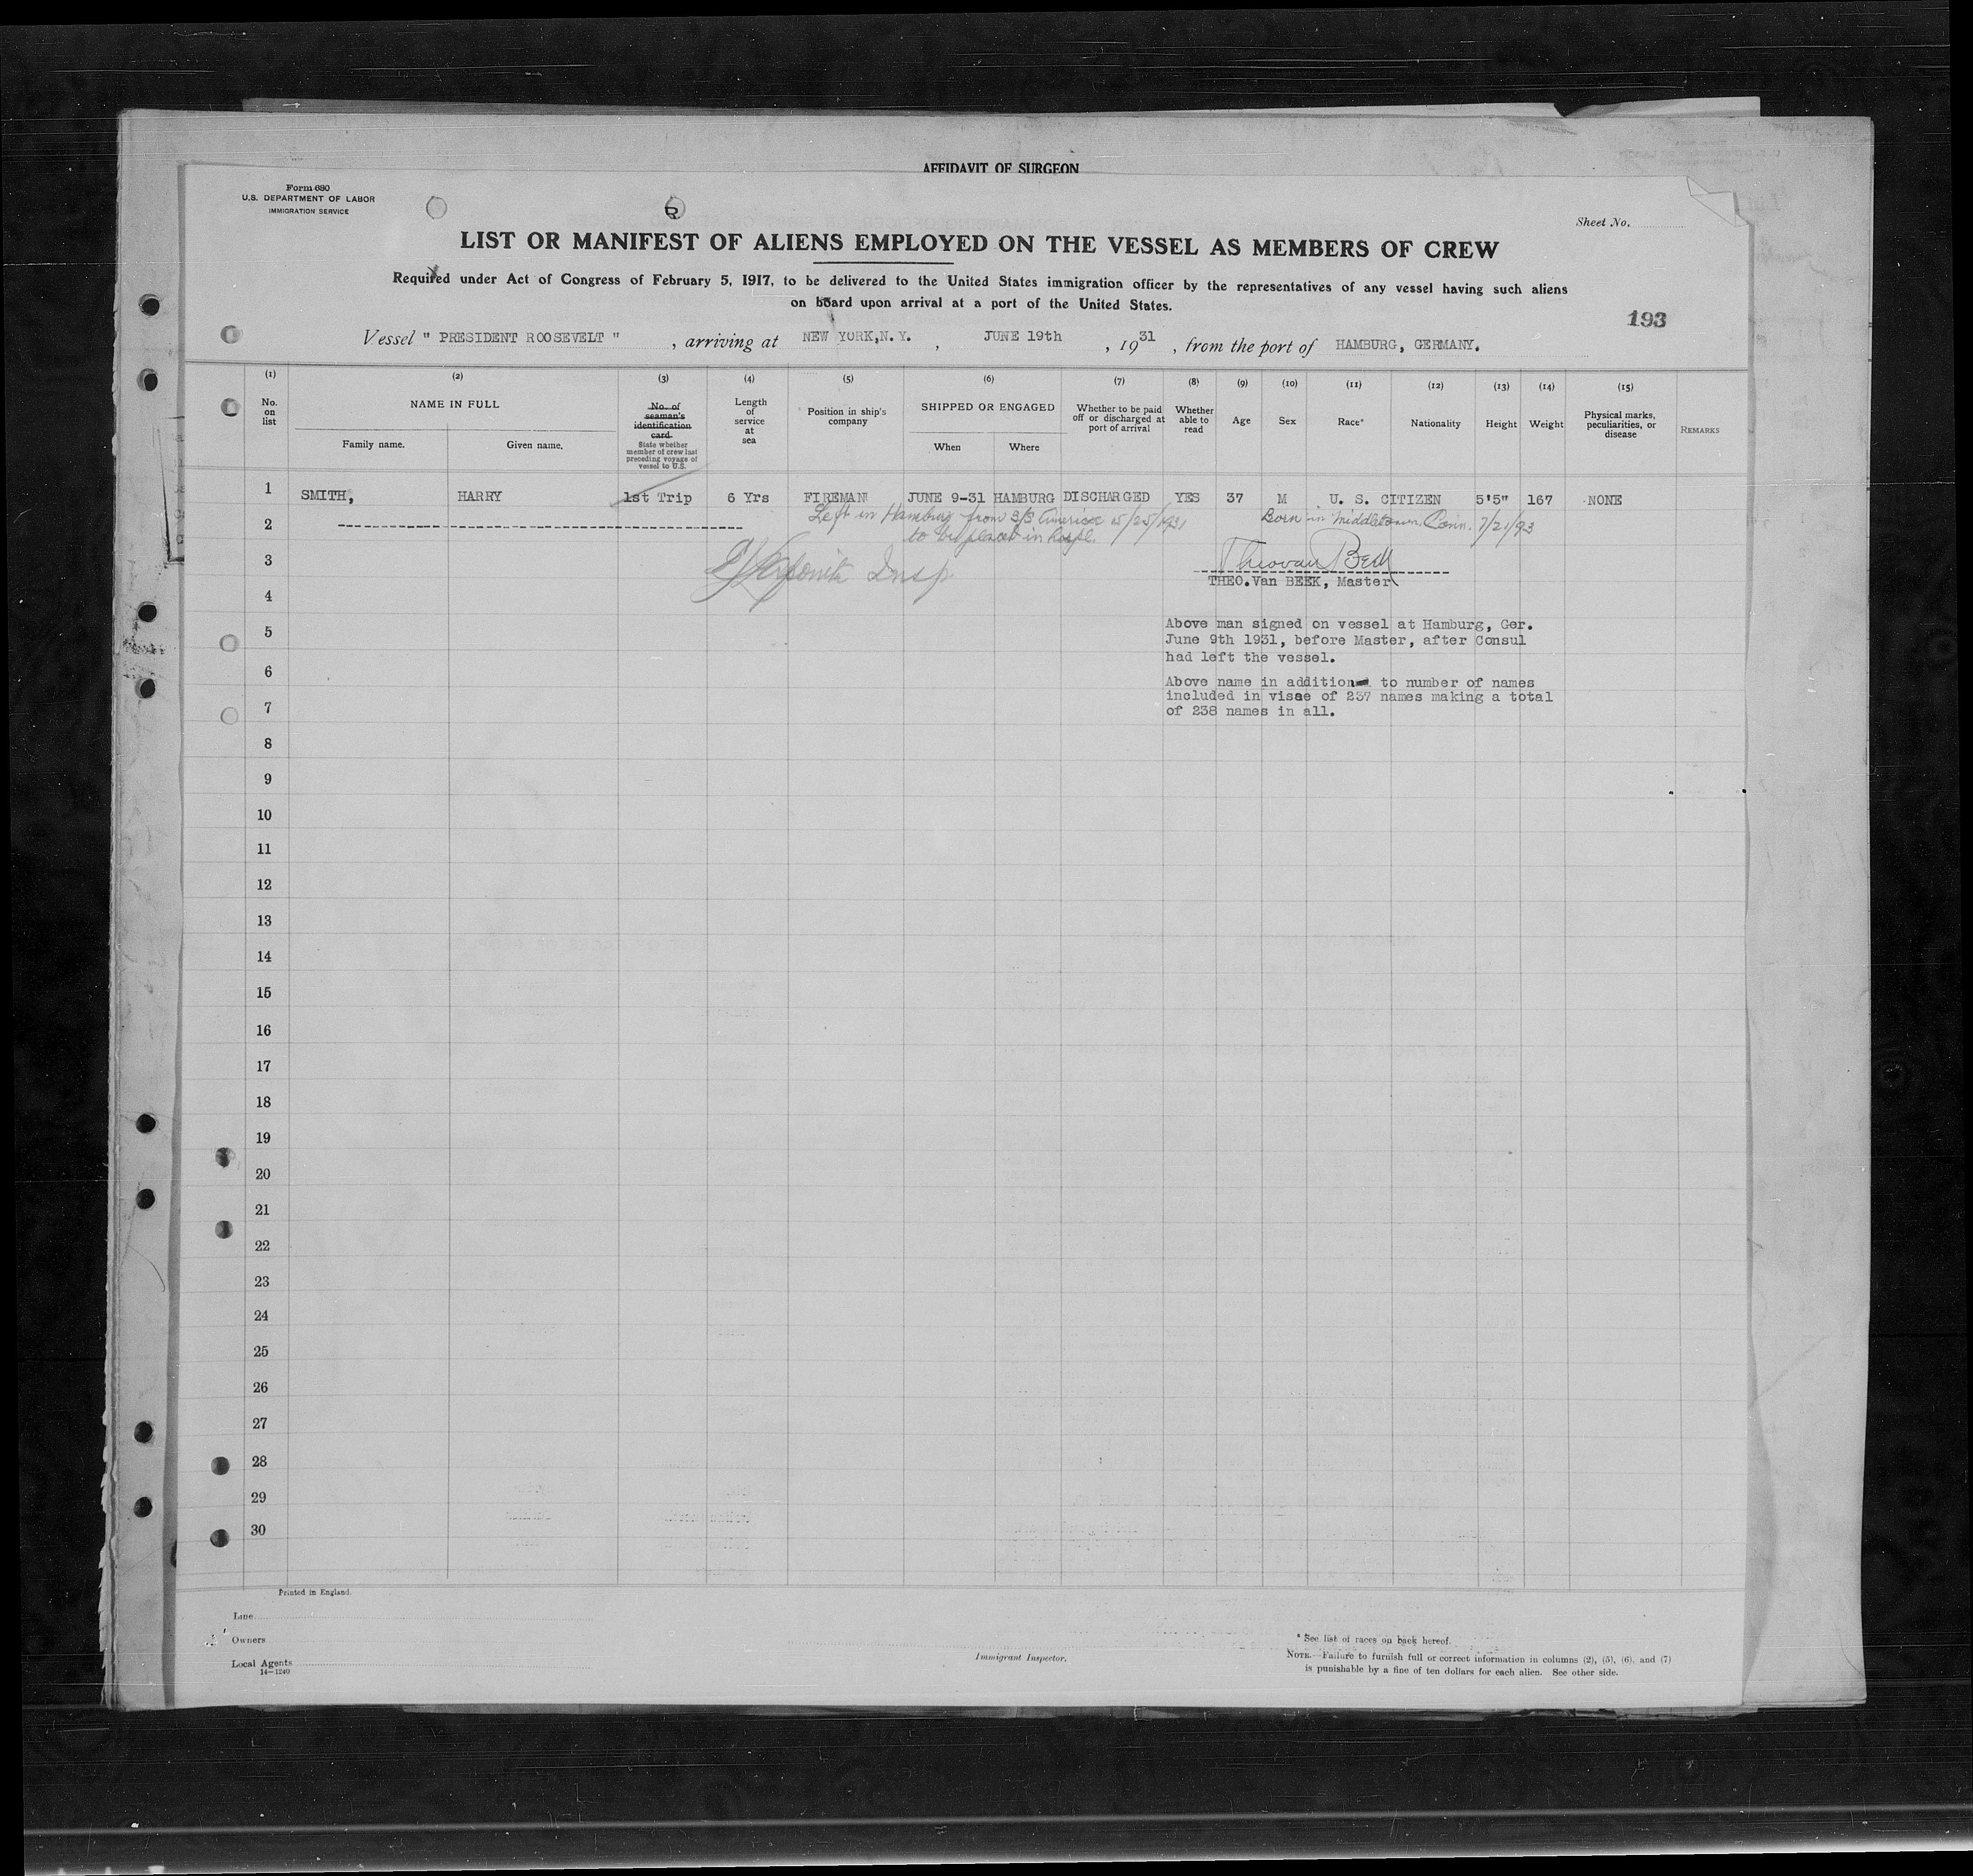 AFFIDAVIT OF SURGEON
Form 680
U.S. DEPARTMENT OF LABOR
IMMIGRATION SERVICE
Sheet No.
LIST OR MANIFEST OF ALIENS EMPLOYED ON THE VESSEL AS MEMBERS OF CREW
Required under Act of Congress of February 5, 1917, to be delivered to the United States immigration officer by the representatives of any vessel having such aliens
on board upon arrival at a port of the United States.
193
Vessel " PRESIDENT ROOSEVELT " , arriving at NEW YORK,N.Y. , JUNE 19th , 1931 , from the port of HAMBURG, GERMANY.
(1) (2) (3) (4) (5) (6) (7) (8) (9) (10) (11) (12) (13) (14) (15)
No. on list
NAME IN FULL
Family name. Given name.
No. of seaman's identification card.
State whether member of crew last preceding voyage of vessel to U.S.
Length of service at sea
Position in ship's company
SHIPPED OR ENGAGED
When Where
Whether to be paid off or discharged at port of arrival
Whether able to read
Age
Sex
Race*
Nationality
Height
Weight
Physical marks, peculiarities, or disease
REMARKS
1 SMITH, HARRY 1st Trip 6 Yrs FIREMAN JUNE 9-31 HAMBURG DISCHARGED YES 37 M U. S. CITIZEN 5'5" 167 NONE
2 Left in Hamburg from S/S America 5/25/1931 Born in Middletown Conn. 7/21/93
to be placed in hospl.
3 Insp
Theo van Beek
THEO.Van BEEK, Master
4
5 Above man signed on vessel at Hamburg, Ger.
June 9th 1931, before Master, after Consul
had left the vessel.
6 Above name in addition to number of names
included in visae of 237 names making a total
7 of 238 names in all.
8
9
10
11
12
13
14
15
16
17
18
19
20
21
22
23
24
25
26
27
28
29
30
Printed in England.
Line
Owners
Local Agents
14—1240
Immigrant Inspector.
* See list of races on back hereof.
NOTE.—Failure to furnish full or correct information in columns (2), (5), (6), and (7)
is punishable by a fine of ten dollars for each alien. See other side.